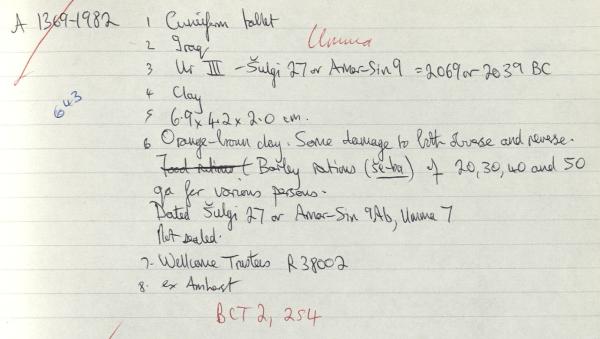 A 1369-1982
1 Cuneiform tablet
2 Iraq
Umma
3 Ur III - Šulgi 27 or Amar-Sin 9 = 2069 or 2039 BC
4 Clay
643
5 6.9 x 4.2 x 2.0 cm.
6 Orange-brown clay. Some damage to both obverse and reverse.
Food rations ( Barley rations (še-ba) of 20, 30, 40 and 50
qa for various persons.
Dated Šulgi 27 or Amar-Sin 9 Ab, Umma 7
Not sealed.
7. Wellcome Trustees R38002
8. ex Amherst
BCT 2, 254